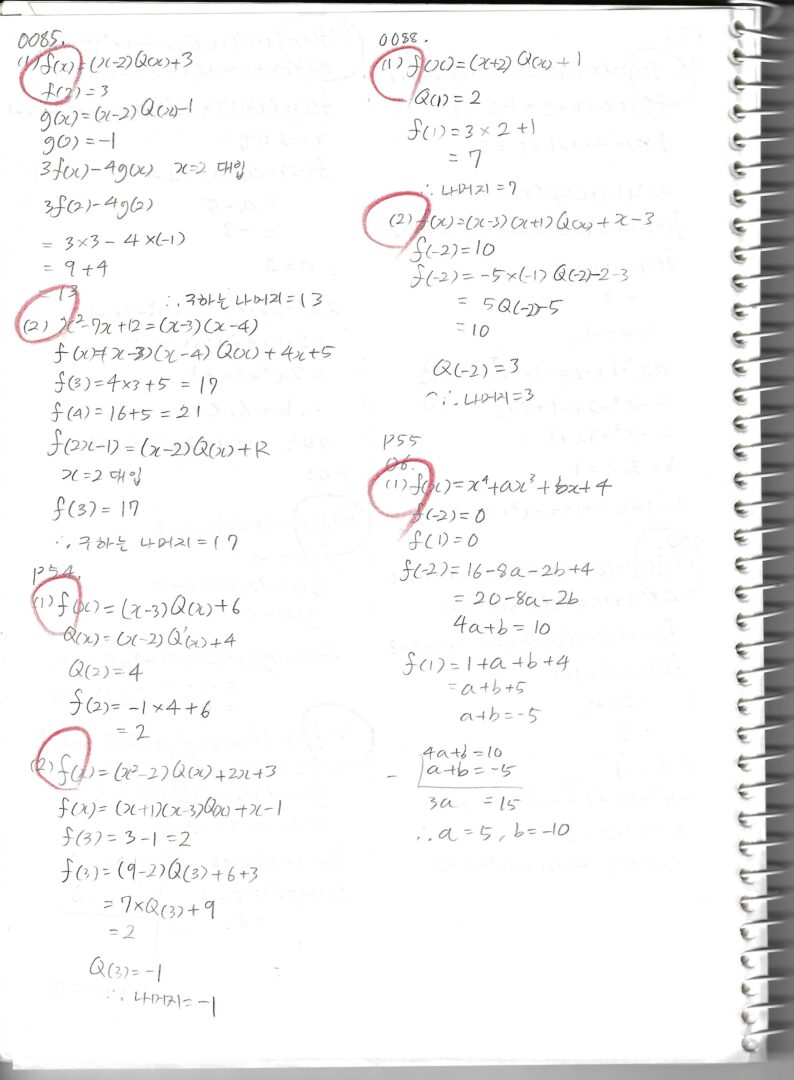 0085.
(1) f(x)=(x-2)Q(x)+3
f(2)=3
g(x)=(x-2)Q(x)-1
g(2)=-1
3f(x)-4g(x) x=2 대입
3f(2)-4g(2)
=3×3-4×(-1)
=9+4
=13 ∴구하는 나머지=13
(2) x²-7x+12=(x-3)(x-4)
f(x)=(x-3)(x-4)Q(x)+4x+5
f(3)=4×3+5=17
f(4)=16+5=21
f(2x-1)=(x-2)Q(x)+R
x=2 대입
f(3)=17
∴구하는 나머지=17
P54.
(1) f(x)=(x-3)Q(x)+6
Q(x)=(x-2)Q'(x)+4
Q(2)=4
f(2)=-1×4+6
=2
(2) f(x)=(x²-2)Q(x)+2x+3
f(x)=(x+1)(x-3)Q(x)+x-1
f(3)=3-1=2
f(3)=(9-2)Q(3)+6+3
=7×Q(3)+9
=2
Q(3)=-1
∴나머지=-1
0088.
(1) f(x)=(x+2)Q(x)+1
Q(1)=2
f(1)=3×2+1
=7
∴나머지=7
(2) f(x)=(x-3)(x+1)Q(x)+x-3
f(-2)=10
f(-2)=-5×(-1)Q(-2)-2-3
=5Q(-2)-5
=10
Q(-2)=3
∴나머지=3
P55
06.
(1) f(x)=x⁴+ax³+bx+4
f(-2)=0
f(1)=0
f(-2)=16-8a-2b+4
=20-8a-2b
4a+b=10
f(1)=1+a+b+4
=a+b+5
a+b=-5
4a+b=10
- a+b=-5
3a =15
∴a=5, b=-10